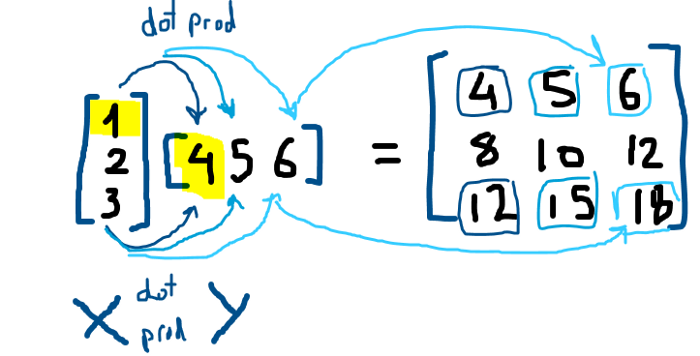 dot prod
[1 2 3] [4 5 6] = [4 5 6
8 10 12
12 15 18]
X dot prod Y